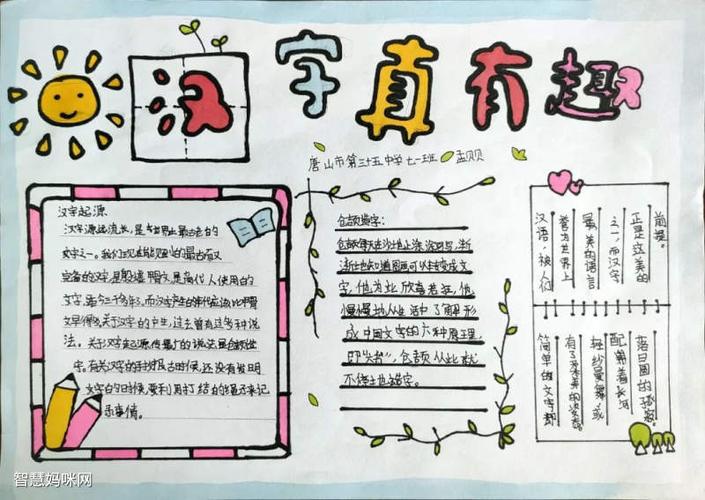 汉字真有趣
唐山市第三十五中学 七一班 孟贝贝
汉字起源
汉字源起流长,是世界上最古老的
文字之一。我们现在能见到的最古而又
完备的汉字,是殷墟甲骨文,是商代人使用的
文字,距今三千多年,而汉字产生的年代应该比甲骨
文早得多。关于汉字的产生,过去曾有过多种说
法。关于汉字起源,最广的说法是仓颉造
字。有关汉字的古时候,还没有发明
文字的时候,要利用打结的绳子来记
录事情。
仓颉造字:
仓颉每天在沙地上涂涂写写,渐
渐他知道图画可以转变成文
字,他为此欣喜若狂,他
慢慢地从生活中了解形
成中国文字的六种原理,
即“六书”,仓颉从此就
不停地造字。
汉语,被人们
誉为世界上
最美的语言
之一,而汉字
正是立美的
前提。
简单的文字都
有了柔美的姿态
轻纱曼舞,或
配着长河
落日圆的孤寂。
智慧妈咪网